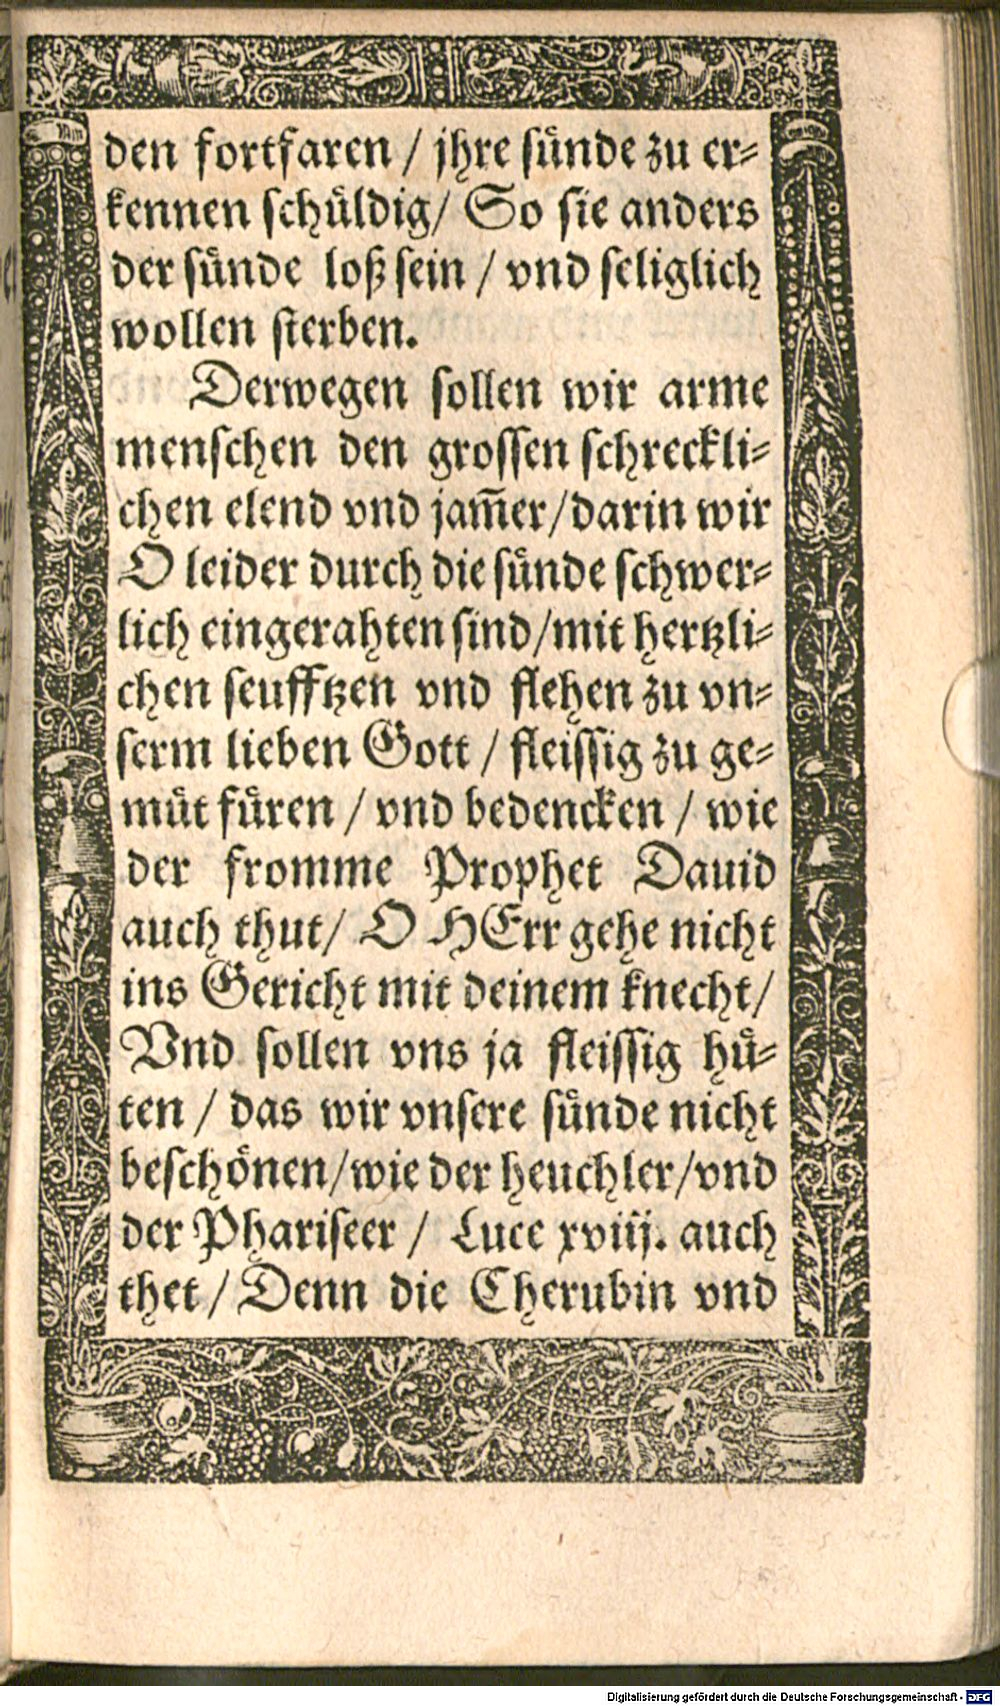 den fortfaren / jhre sůnde zu er⸗
kennen schůldig/ So sie anders
der sůnde loß sein / vnd seliglich
wollen sterben.
Derwegen sollen wir arme
menschen den grossen schreckli⸗
chen elend vnd jam̃er/darin wir
O leider durch die sůnde schwer⸗
lich eingerahten sind/mit hertzli⸗
chen seufftzen vnd flehen zu vn⸗
serm lieben Gott / fleissig zu ge⸗
můt fůren / vnd bedencken / wie
der fromme Prophet Dauid
auch thut/ O HErr gehe nicht
ins Gericht mit deinem knecht/
Vnd sollen vns ja fleissig hů⸗
ten / das wir vnsere sůnde nicht
beschönen/wie der heuchler/vnd
der Phariseer / Luce xviij. auch
thet/ Denn die Cherubin vnd
Digitalisierung gefördert durch die Deutsche Forschungsgemeinschaft - DFG